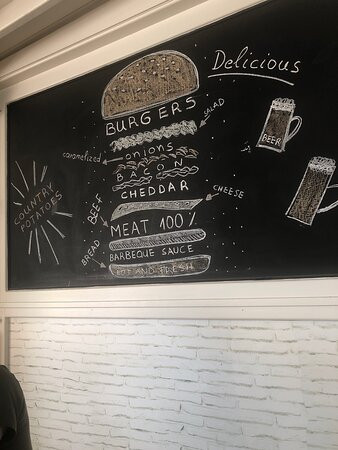 Delicious
BURGERS
SALAD
caramelized onions
BACON
CHEDDAR
CHEESE
BEEF
MEAT 100%
BREAD
BARBEQUE SAUCE
HOT AND FRESH
BEER
COUNTRY
POTATOES